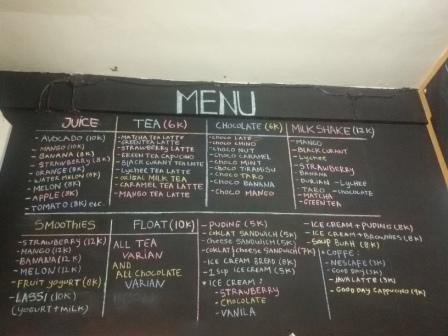 MENU
JUICE
- AVOCADO (10K)
- MANGO (10K)
- BANANA (8K)
- STRAWBERRY (8K)
- ORANGE (8K)
- WATER MELON (8K)
- MELON (8K)
- APPLE (8K)
- TOMATO (8K) etc.
TEA (6K)
- MATCHA TEA LATTE
- GREENTEA LATTE
- STRAWBERRY LATTE
- GREEN TEA CAPUCINO
- BLACK CURANT TEA LATTE
- Lychee TEA LATTE
- ORIBAL MILK TEA
- CARAMEL TEA LATTE
- MANGO TEA LATTE
CHOCOLATE (6K)
- CHOCO LATE
- CHOCO CHINO
- CHOCO NUT
- CHOCO CARAMEL
- CHOCO MINT
- CHOCO TIRAMISU
- CHOCO TARO
- CHOCO BANANA
- CHOCO MANGO
MILKSHAKE (12K)
- MANGO
- BLACK CURRNT
- Lychee
- STRAWBERRY
- BANANA
- DURIAN
- Lychee
- TARO
- CHOCOLATE
- MATCHA
- GREEN TEA
SMOOTHIES
- STRAWBERRY (12K)
- MANGO (12K)
- BANANA (12K)
- MELON (12K)
- FRUIT YOGURT (8K)
- LASSI (10K)
(YOGURT + MILK)
FLOAT (10K)
ALL TEA
VARIAN
AND
ALL CHOCOLATE
VARIAN
- PUDING (5K)
- COKLAT SANDWICH (5K)
- CHEESE SANDWICH (5K)
- COKLAT/CHEESE SANDWICH (7K)
- ICE CREAM BREAD (8K)
- 1 SCUP ICE CREAM (5K)
* ICE CREAM :
- STRAWBERRY
- CHOCOLATE
- VANILA
- ICE CREAM + PUDING (8K)
- ICE CREAM + BROWNIES (8K)
- Soup BUAH (8K)
* COFFE :
- NESCAFE (3K)
- GOOD DAY (3K)
- JAVA LATTE (3K)
- GOOD DAY CAPPUCINO (4K)